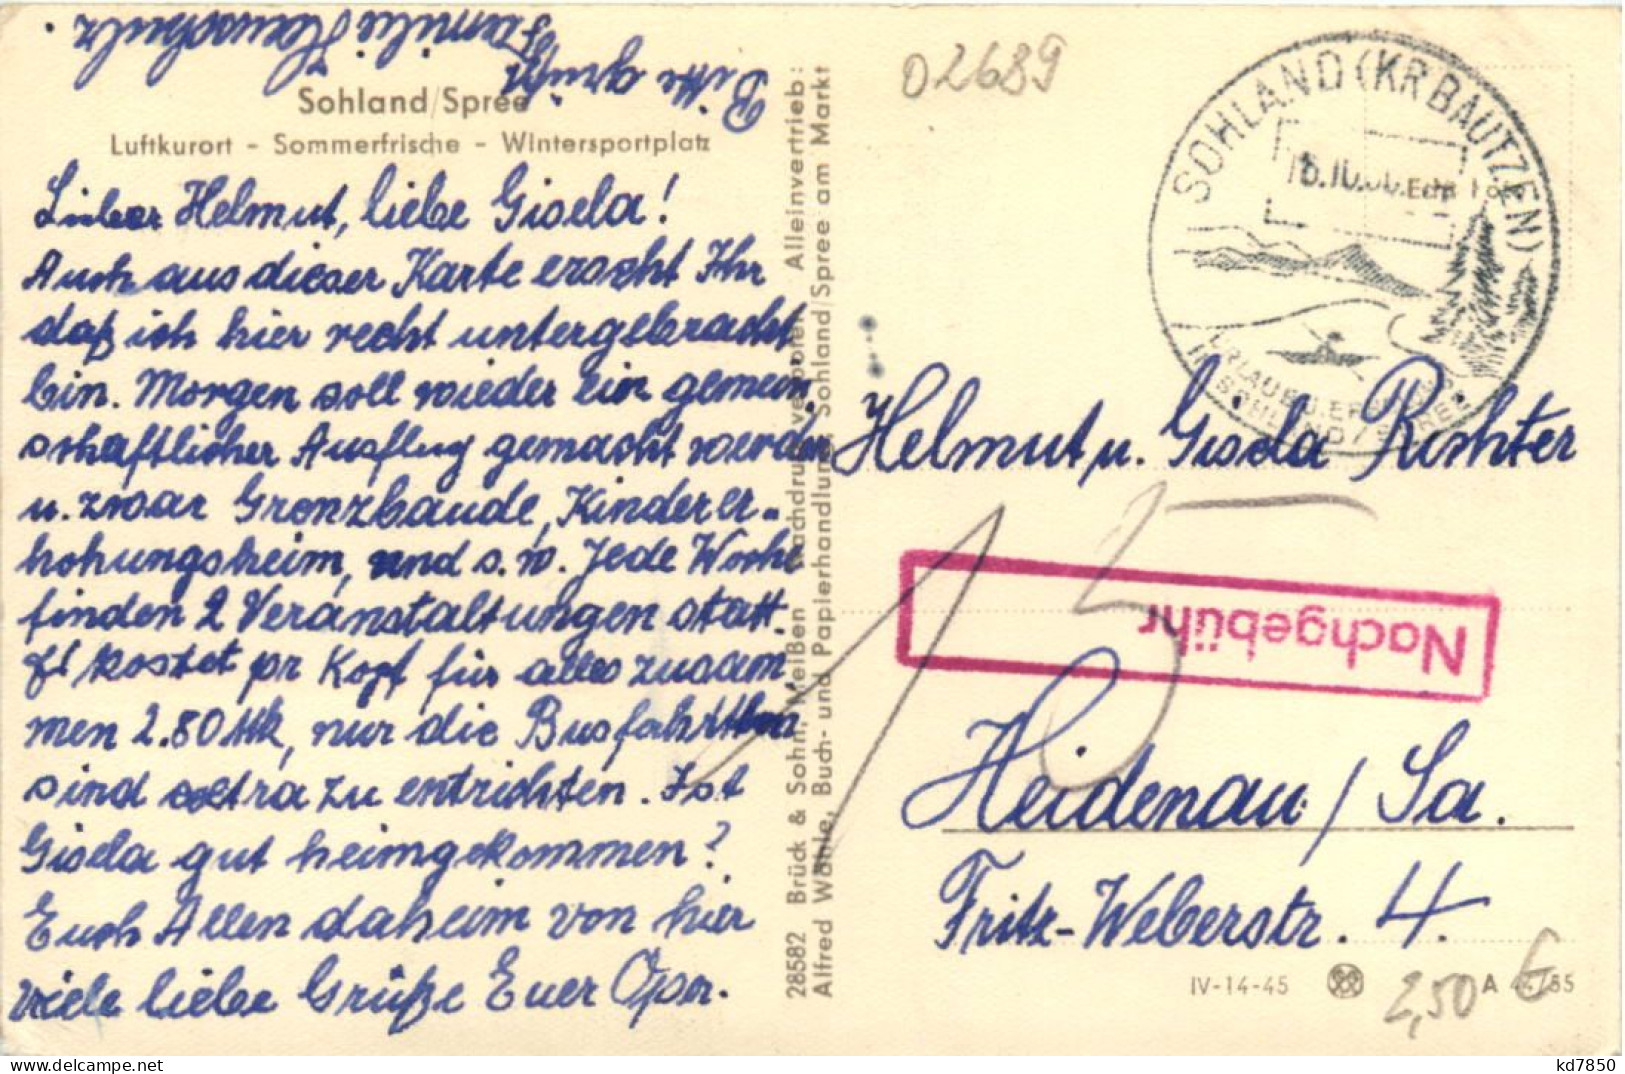 Bitte grüßt
Familie
Sohland/Spree
Luftkurort - Sommerfrische - Wintersportplatz
Lieber Helmut, liebe Gisela!
Auch aus dieser Karte erseht Ihr
daß ich hier recht untergebracht
bin. Morgen soll wieder ein gemein
schaftlicher Ausflug gemacht werden
u. zwar Grenzbaude, Kinderer-
hohungsheim, und s. w. Jede Woche
finden 2 Veranstaltungen statt.
Es kostet pr Kopf für alles zusam
men 2.80 Mk, nur die Busfahrten
sind extra zu entrichten. Ist
Gisela gut heimgekommen?
Euch Allen daheim von hier
viele liebe Grüße Euer Opa.
28582 Brück & Sohn, Meißen Nachdruck verboten Alleinvertrieb:
Alfred Wähle, Buch- und Papierhandlung, Sohland/Spree am Markt
02689
SOHLAND (KR BAUTZEN)
Helmut u. Gisela Richter
15
Nachgebühr
Heidenau / Sa.
Fritz-Weberstr. 4.
IV-14-45
A 44/55
2,50 €
kd7850